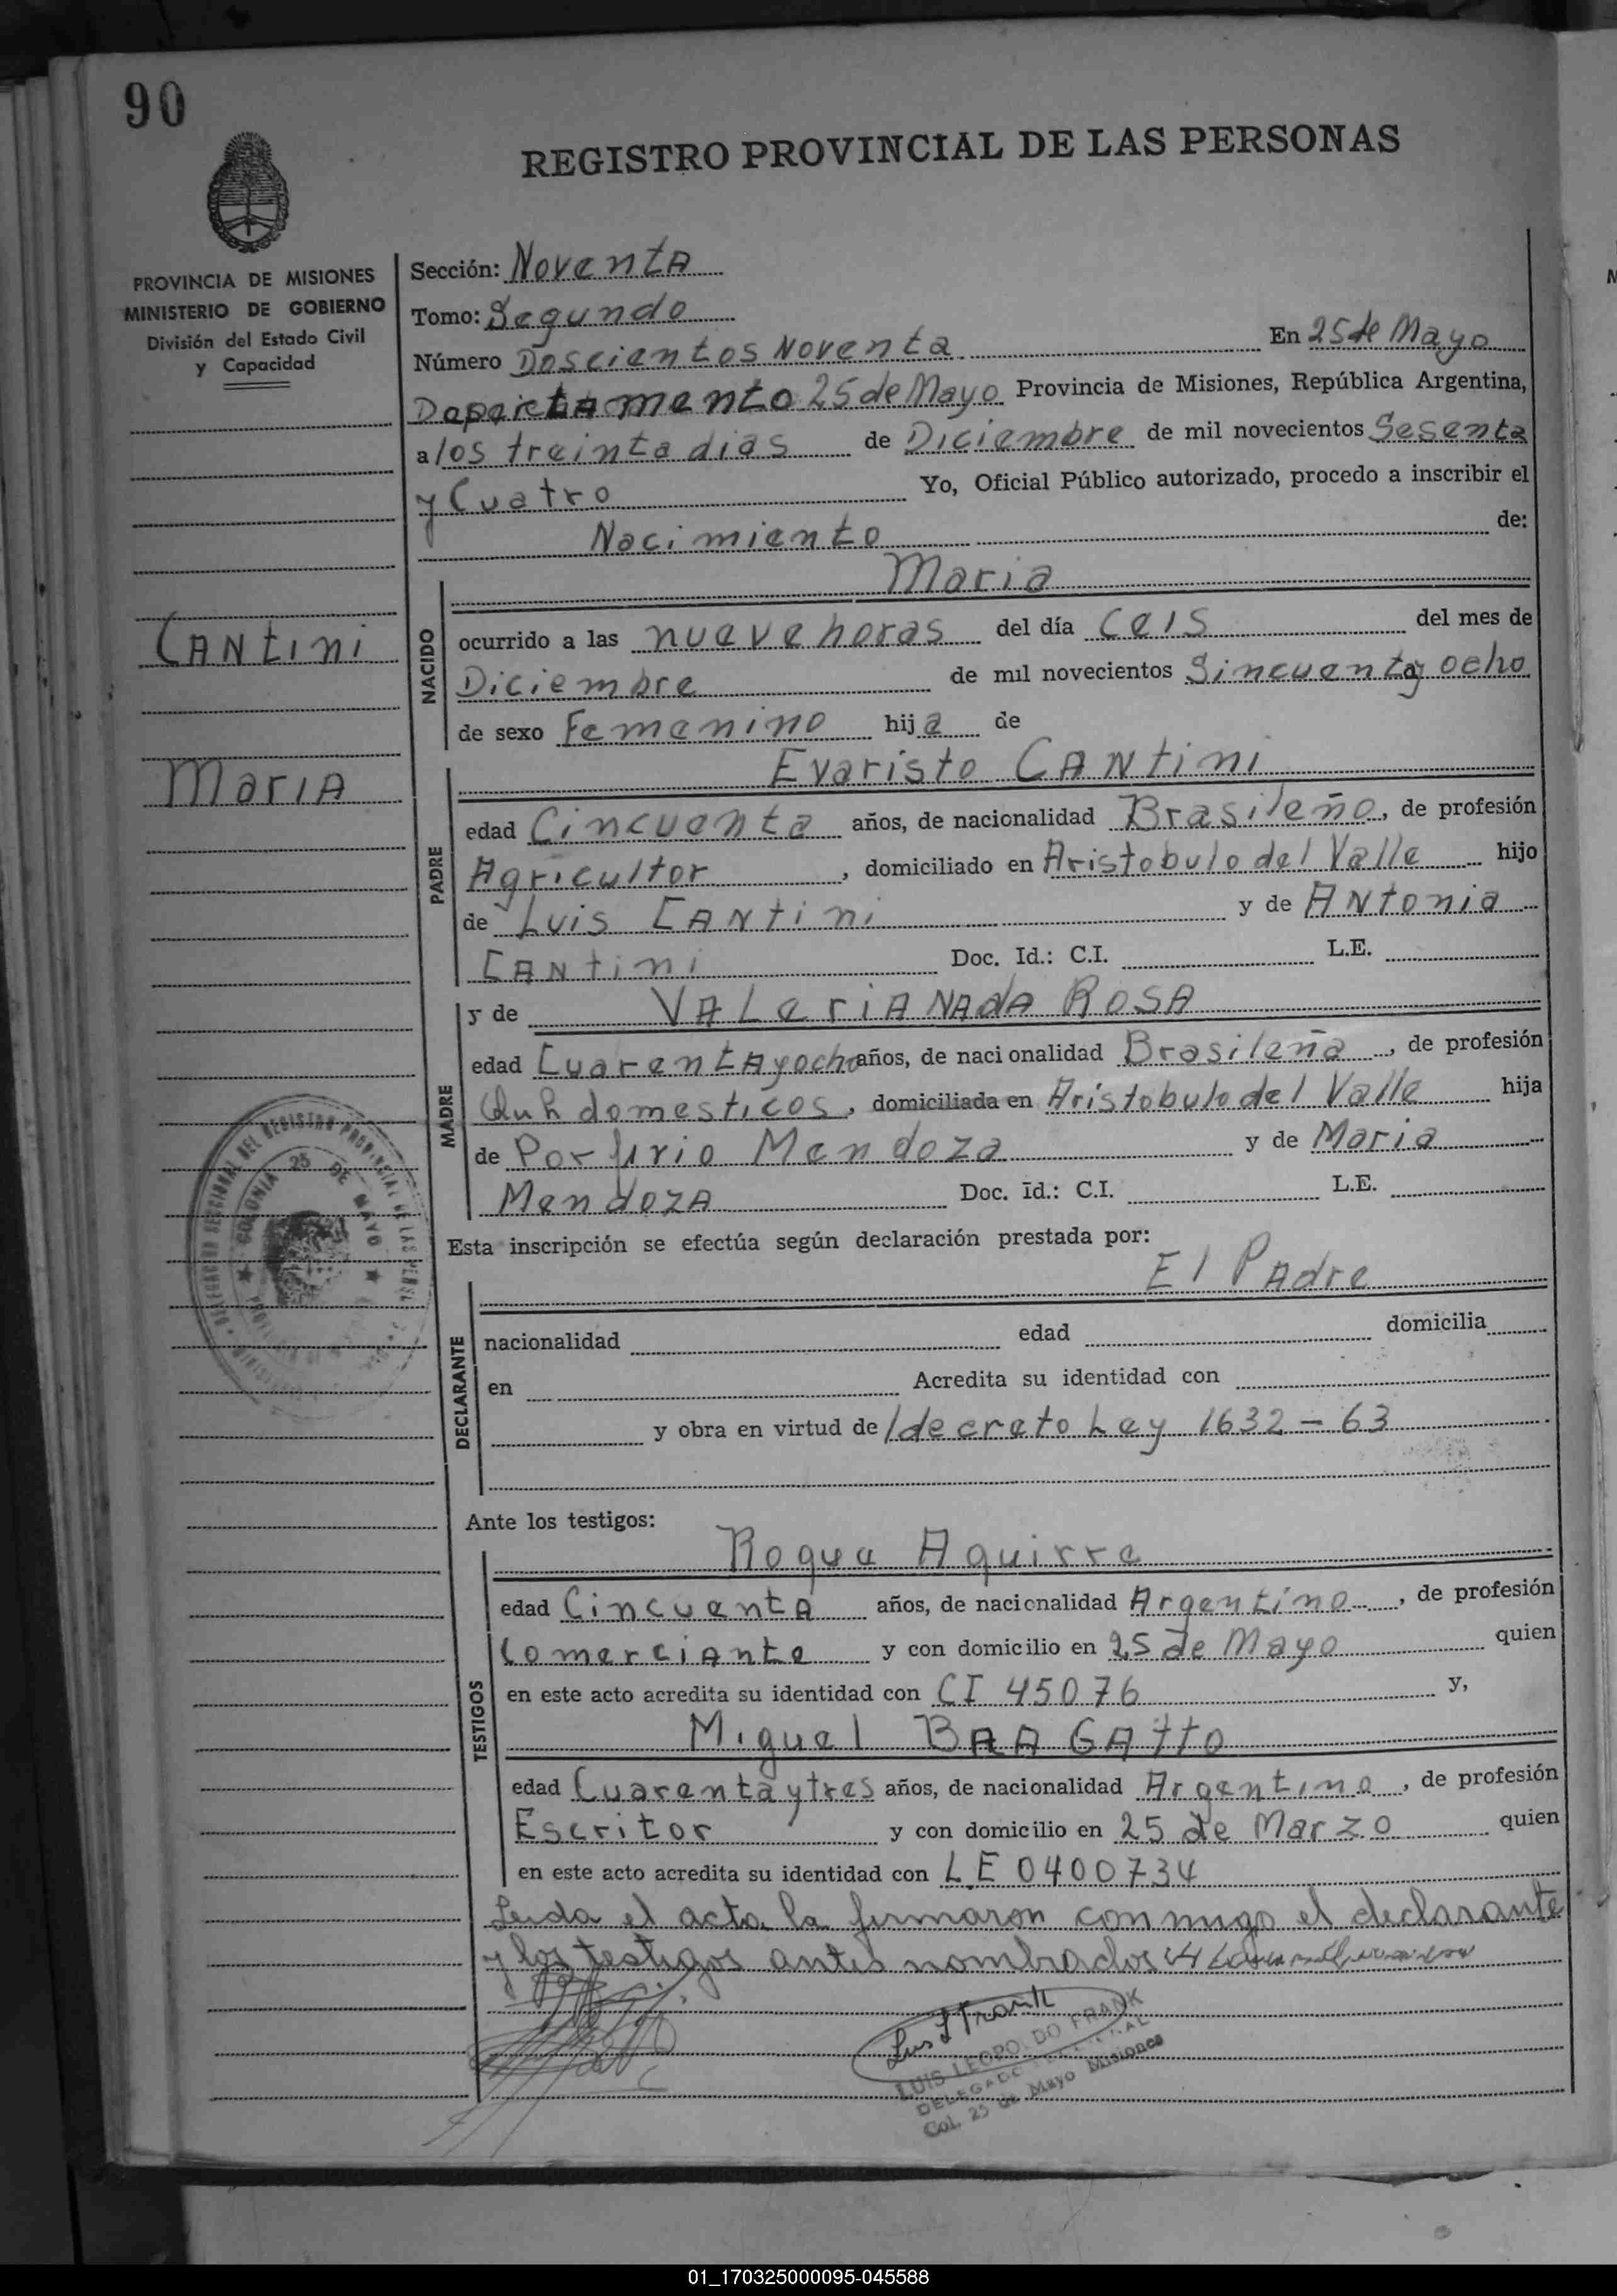 90
REGISTRO PROVINCIAL DE LAS PERSONAS
PROVINCIA DE MISIONES
MINISTERIO DE GOBIERNO
División del Estado Civil
y Capacidad
Sección: Noventa
Tomo: Segundo
Número Doscientos Noventa En 25 de Mayo
Departamento 25 de Mayo Provincia de Misiones, República Argentina,
a los treinta dias de Diciembre de mil novecientos Sesenta
y Cuatro Yo, Oficial Público autorizado, procedo a inscribir el
Nacimiento de:
Maria
CANtini
MariA
NACIDO
ocurrido a las nueve horas del día Ceis del mes de
Diciembre de mil novecientos Sincuenta y ocho
de sexo Femenino hija de
PADRE
Evaristo CANtini
edad Cincuenta años, de nacionalidad Brasileño, de profesión
Agricultor, domiciliado en Aristobulo del Valle hijo
de Luis CANtini y de ANtonia
CANtini Doc. Id.: C.I. L.E.
MADRE
y de VALeriANA dA ROSA
edad CuarentAyocho años, de nacionalidad Brasileña, de profesión
domesticos, domiciliada en Aristobulo del Valle hija
de Porfirio Mendoza y de Maria
MendozA Doc. Id.: C.I. L.E.
Esta inscripción se efectúa según declaración prestada por:
DECLARANTE
El PAdre
nacionalidad edad domicilia
en Acredita su identidad con
y obra en virtud del decreto Ley 1632-63
Ante los testigos:
TESTIGOS
Roque Aguirre
edad CincuentA años, de nacionalidad Argentino, de profesión
ComerciAnte y con domicilio en 25 de Mayo quien
en este acto acredita su identidad con CI 45076 y,
Miguel BAAGAtto
edad Cuarenta y tres años, de nacionalidad Argentino, de profesión
Escritor y con domicilio en 25 de Marzo quien
en este acto acredita su identidad con LE 0400734
Leida el acta la firmaron conmigo el declarante
y los testigos antes nombrados
Luis L Frank
LUIS LEOPOLDO FRANK
DELEGADO
Col. 25 de Mayo Misiones
COLONIA 25 DE MAYO
01_170325000095-045588